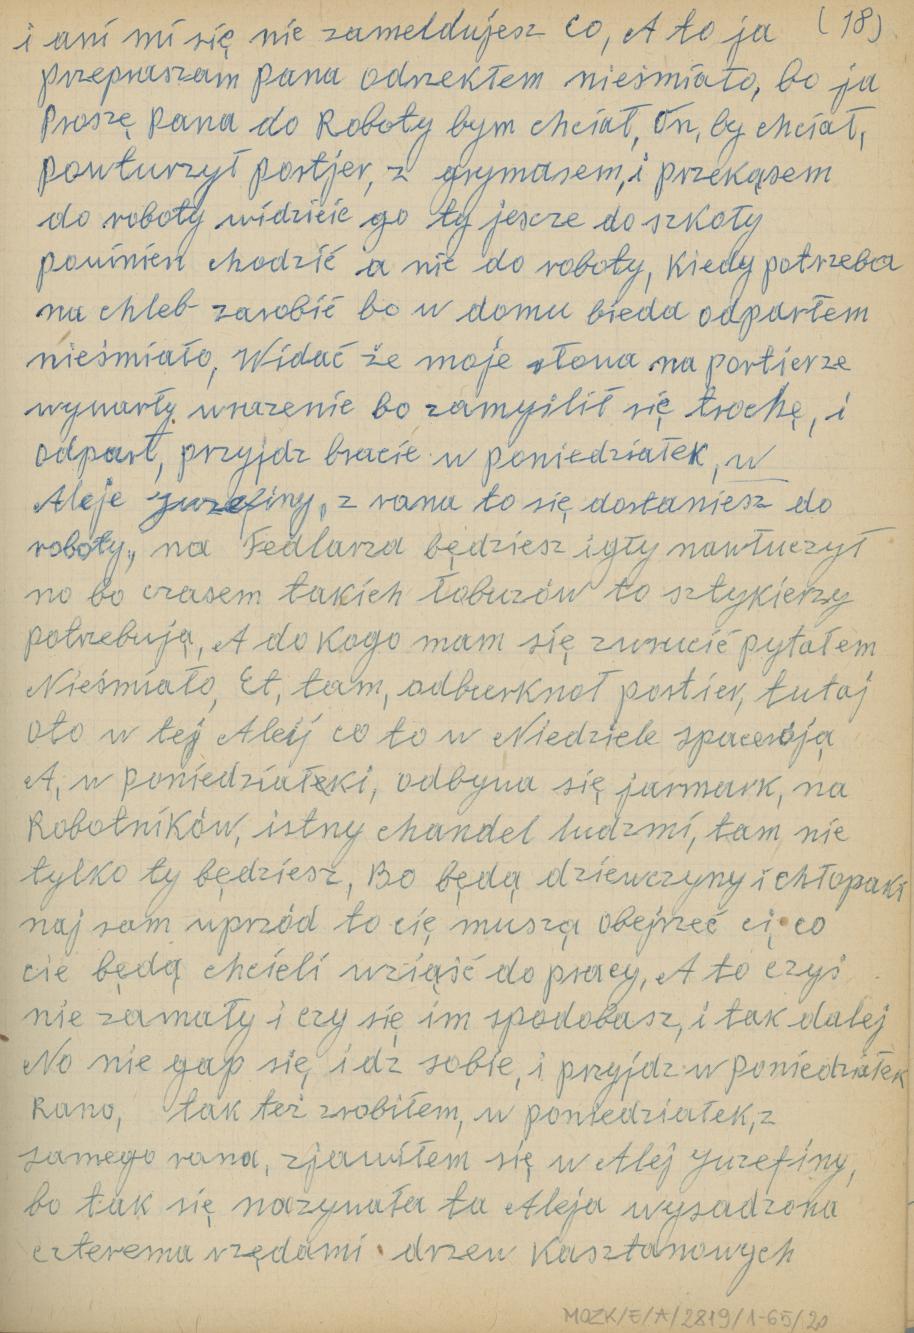 (18)
i ani mi się nie zameldujesz co, A to ja
przepraszam pana odrzekłem nieśmiało, bo ja
Proszę Pana do Roboty bym chciał, On, by chciał,
powturzył portjer, z grymasem, i przekąsem
do roboty widzicie go ty jescze do szkoły
powinien chodzić a nie do roboty, Kiedy potrzeba
na chleb zarobić bo w domu bieda odparłem
nieśmiało, Widać że moje słowa na portierze
wywarły wrazenie bo zamyślił się trochę, i
odparł, przyjdz bracie w poniedziałek, w
Aleje Juzefiny, z rana to się dostaniesz do
roboty,, na Fedlarza będziesz igły nawłuczył
no bo czasem takich łobuzów to sztykierzy
potrzebują, A do Kogo mam się zwrucić pytałem
Nieśmiało, Et, tam, odburknoł portier, tutaj
oto w tej Aleij co to w Niedziele spacerują
A, w poniedziałeki, odbywa się jarmark, na
Robotników, istny chandel ludzmi, tam nie
tylko ty będziesz, Bo będą dziewczyny i chłopaki
naj sam uprzód to cię muszą obejrzeć ci, co
cie będą chcieli wziąść do pracy, A to czyś
nie zamały i czy się im spodobasz, i tak dalej
No nie gap się, idz sobie, i przyjdz w poniedziałek
Rano, tak też zrobiłem, w poniedziałek, z
samego rana, zjawiłem się w Alej Juzefiny,
bo tak się nazywała ta Aleja wysadzona
czterema rzędami drzew Kasztanowych
MOZK/E/A/2819/1-65/20